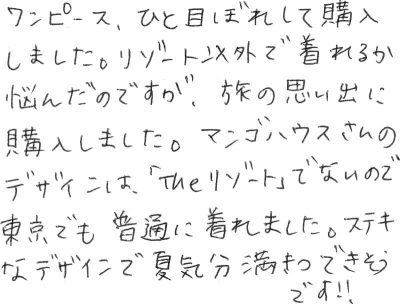 ワンピース、ひと目ぼれして購入
しました。リゾート以外で着れるか
悩んだのですが、旅の思い出に
購入しました。マンゴハウスさんの
デザインは、「Theリゾート」でないので
東京でも普通に着れました。ステキ
なデザインで夏気分満きつできそう
です!!